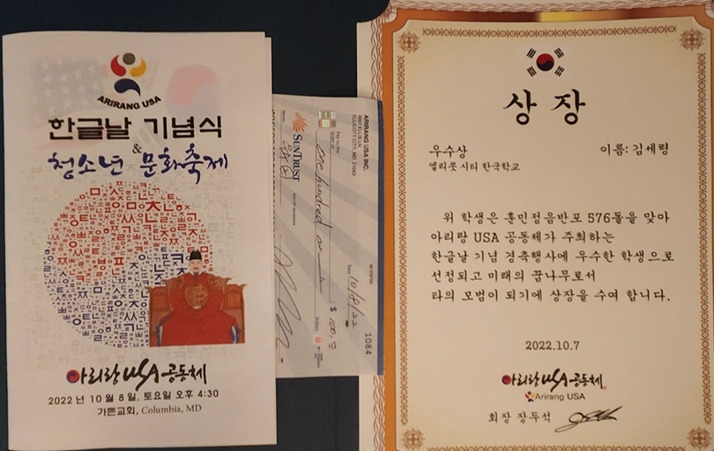 ARIRANG USA
한글날 기념식
&
청소년 문화축제
아리랑 USA 공동체
2022년 10월 8일, 토요일 오후 4:30
가든교회, Columbia, MD
ARIRANG USA INC.
ELLICOTT CITY, MD 21043
1084
Date 10/8/22
Pay to the
one hundred and
$ 100.00
SUNTRUST
상 장
우수상
이름: 김세령
엘리콧 시티 한국학교
위 학생은 훈민정음반포 576돌을 맞아
아리랑 USA 공동체가 주최하는
한글날 기념 경축행사에 우수한 학생으로
선정되고 미래의 꿈나무로서
타의 모범이 되기에 상장을 수여 합니다.
2022.10.7
아리랑 USA 공동체
Arirang USA
회장 장두석